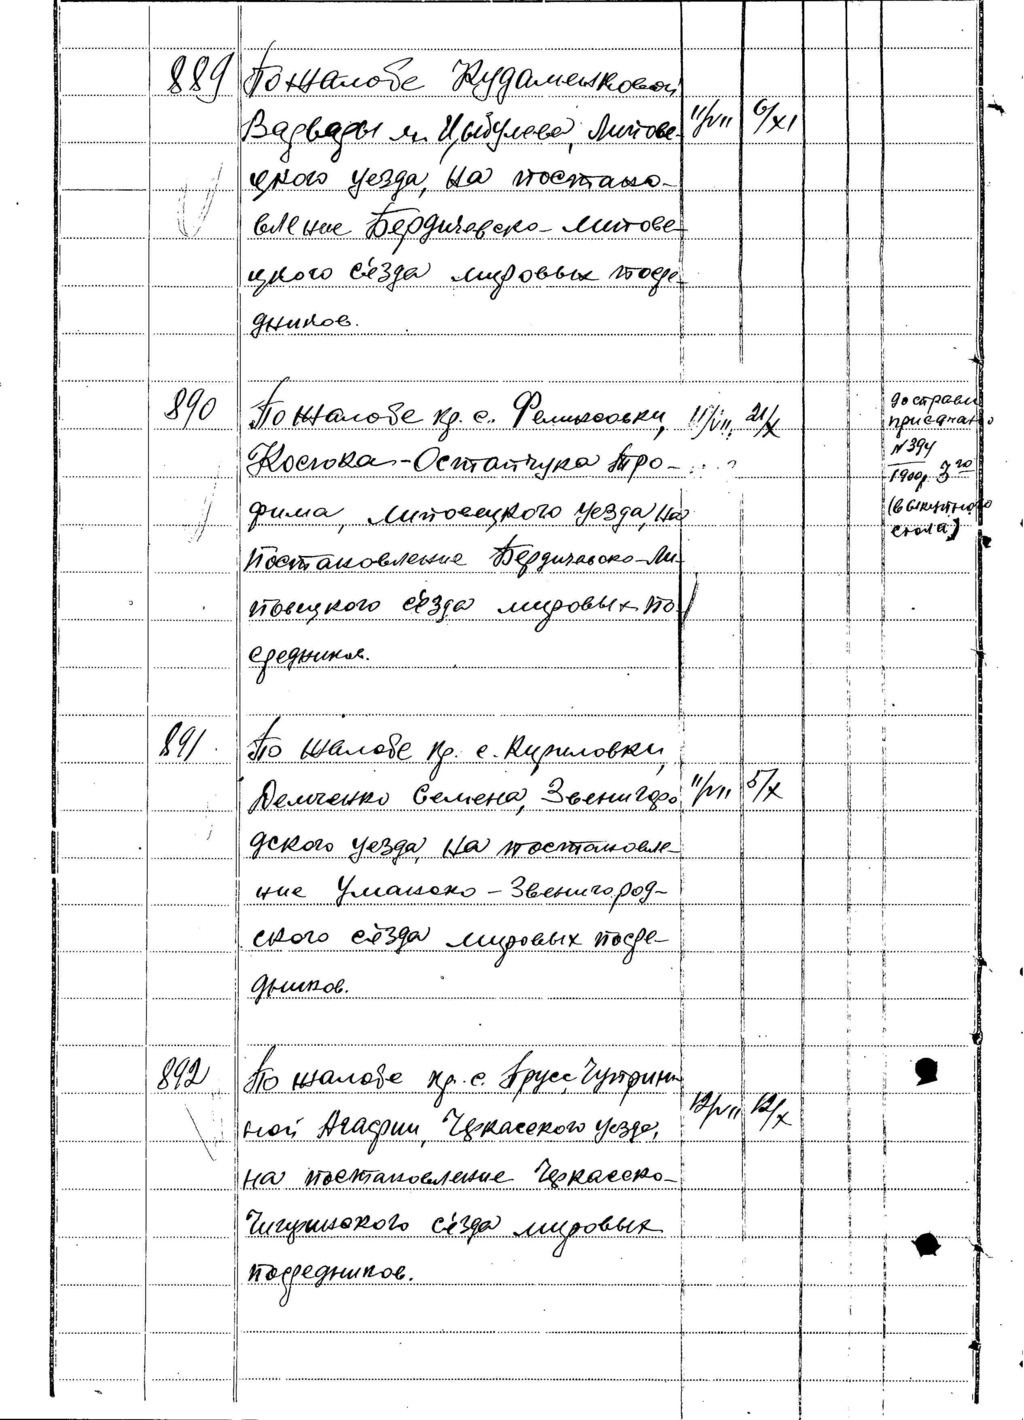 889 По жалобе Кудаменковой
Варвары м. Цыбулева, Липове- 11/VII 6/XI
цкого уезда, на постано-
вление Бердичевско-Липове-
цкого съезда мировых посре-
дников.
890 По жалобе кр. с. Феликсовки, 11/VII 21/X
Костюка-Остапчука Тро-
фима, Липовецкого уезда, на
постановление Бердичевско-Ли-
повецкого съезда мировых по-
средников.
присланно
№ 394
1900г. 3го
(выкупного
стола)
891 По жалобе кр. с. Кириловки,
Демченко Семена, Звенигоро- 11/VII 5/X
дского уезда, на постановле-
ние Уманско-Звенигород-
ского съезда мировых посре-
дников.
892 По жалобе кр. с. Прусс, Чуприн-
ной Агафии, Черкасского уезда, 12/VII 12/X
на постановление Черкасско-
Чигиринского съезда мировых
посредников.